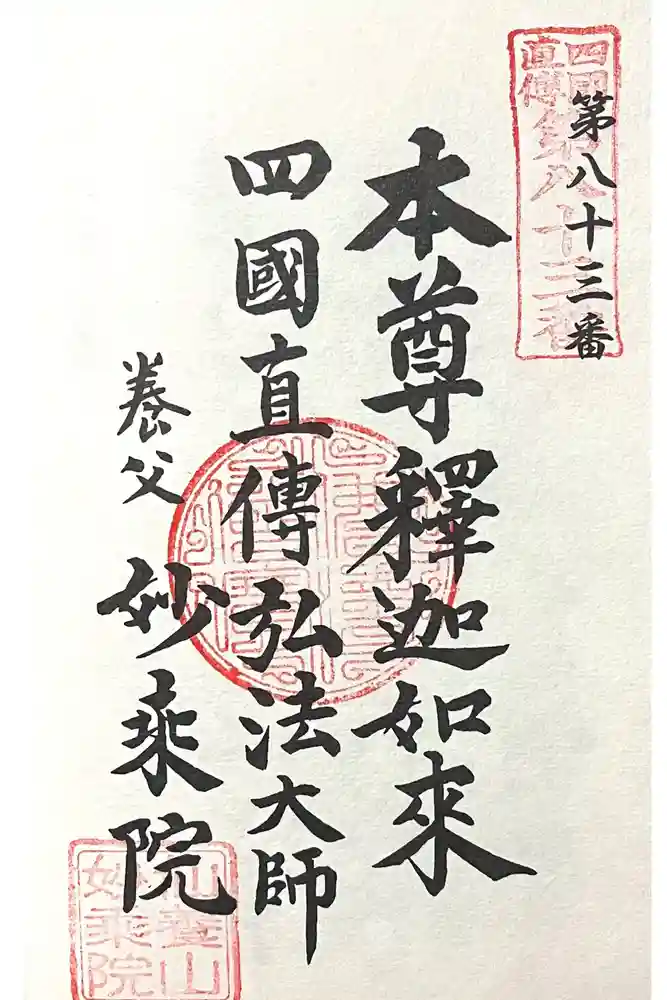 四國
直傳
第八十三番
第八十三番
本尊釋迦如來
四國直傳弘法大師
養父
妙乘院
山
妙乘院